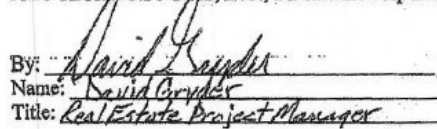 By: David L Gryder
Name: David Gryder
Title: Real Estate Project Manager